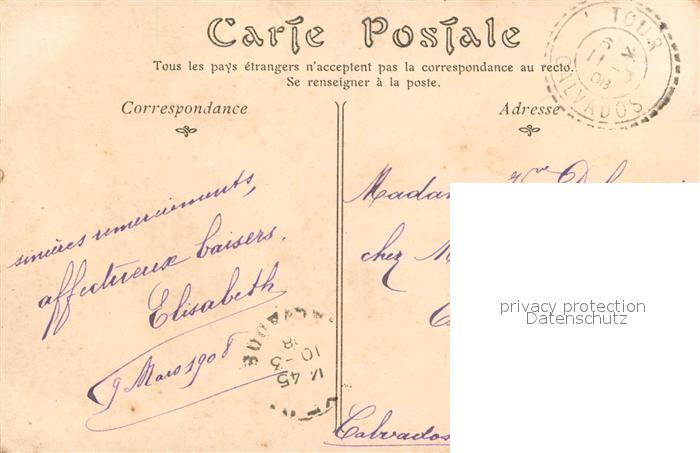 Carte Postale
Tous les pays étrangers n'acceptent pas la correspondance au recto.
Se renseigner à la poste.
Correspondance
Adresse
TOUR
CALVADOS
sincères remerciements,
affectueux baisers.
Elisabeth
9 Mars 1908
CALVADOS
10-3
08
45
Madam
chez M
Calvados
privacy protection
Datenschutz